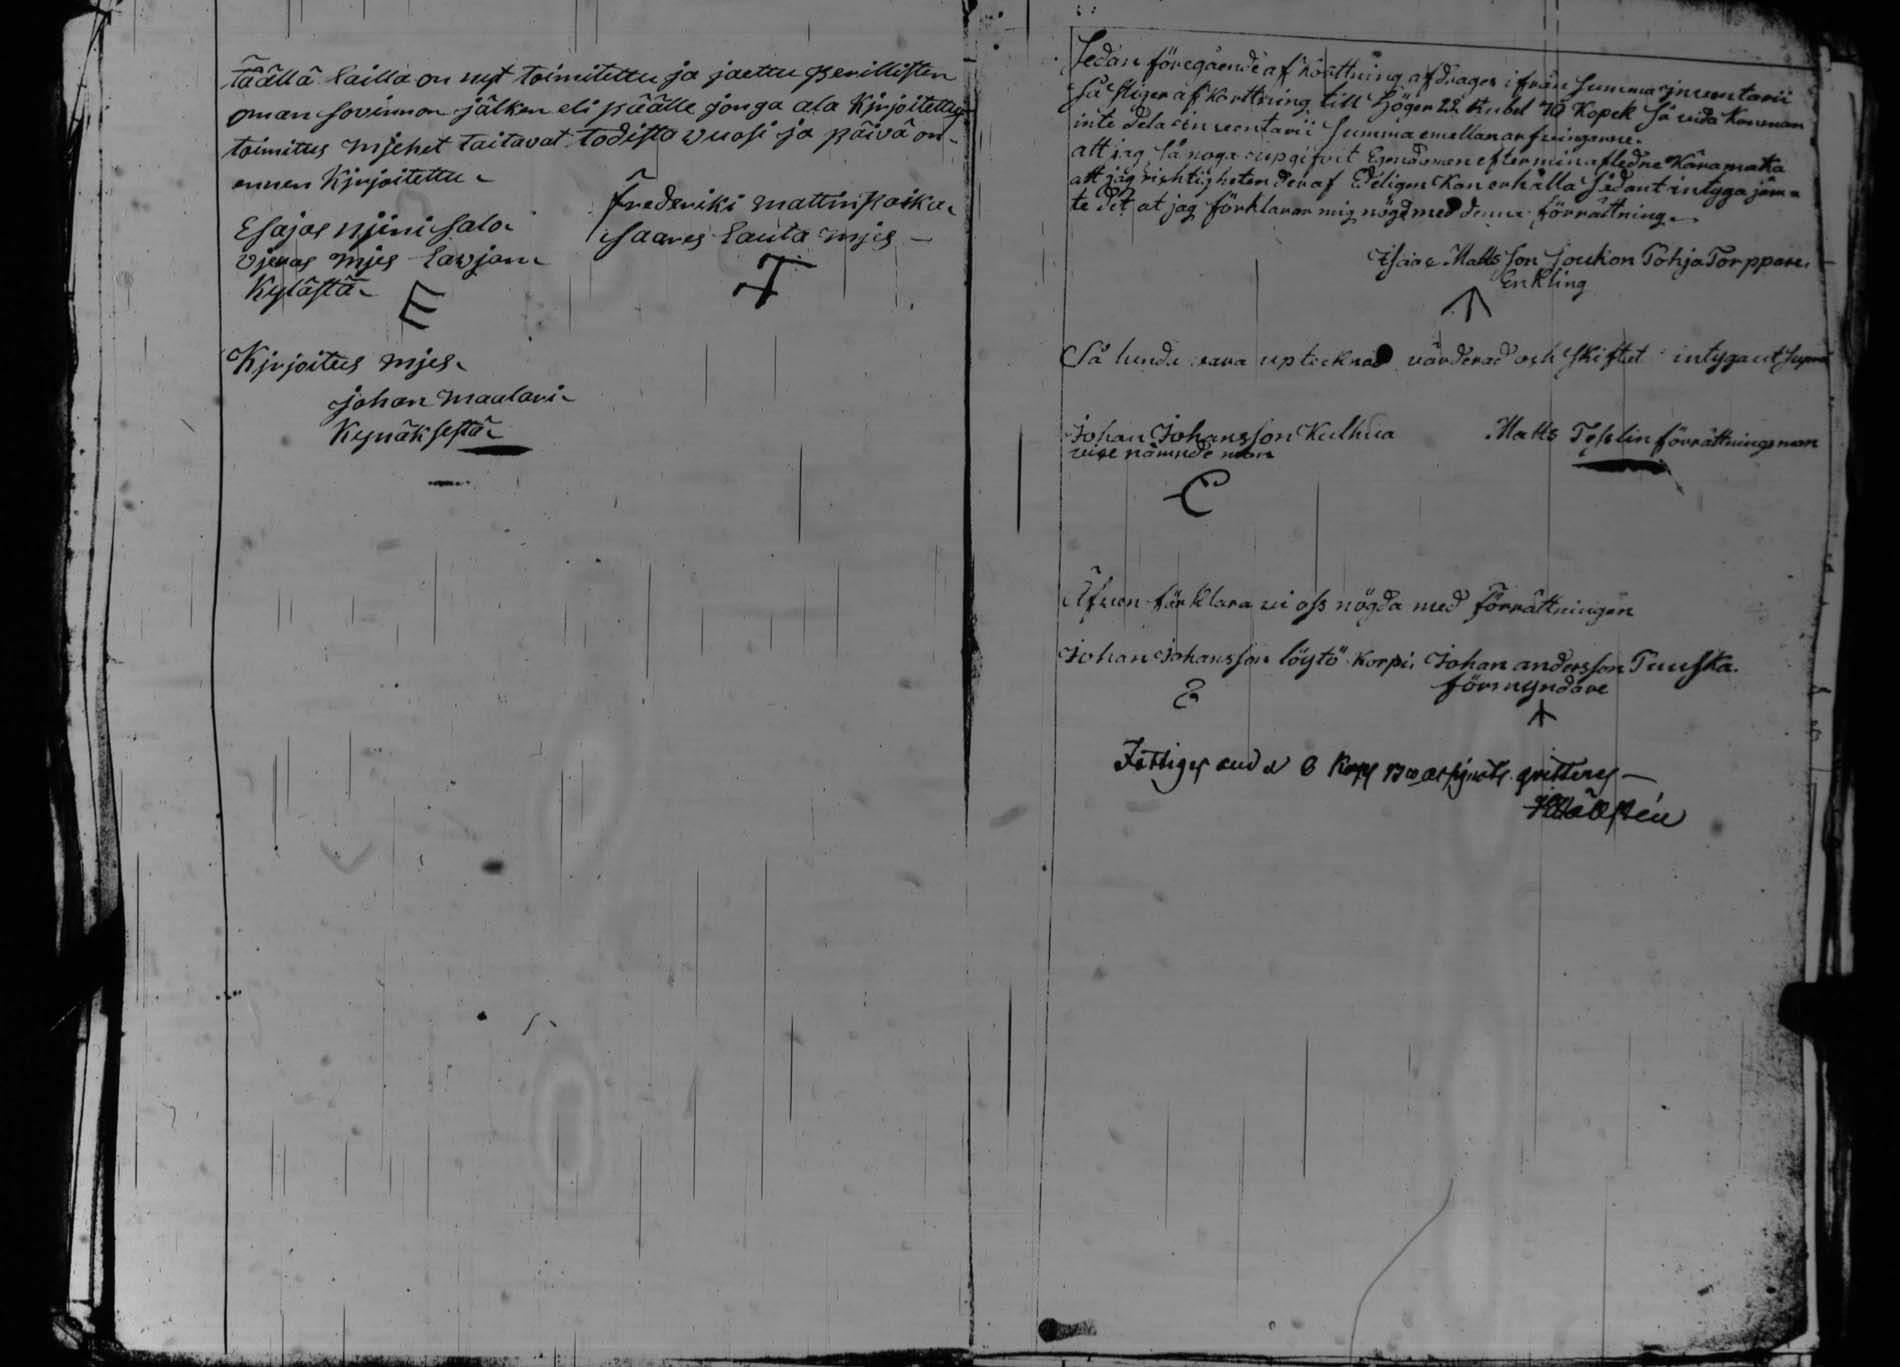 täällä lailla on nyt toimitettu ja jaettu perillisten
oman sovinnon jälken eli päälle jonga ala Kirjoitettu
toimitus mjehet taitavat todista vuosi ja päivä on
ennen Kirjoitettu
Fredriki mattinpoika
Esajas njinisalo saares lauta mjes
vjeras mjes lavjan
Kylästä
E T
Kirjoitus mjes
johan maulari
Kynäksestä
Sedan föregående afkorttning afdrages ifrån Summa inventarii
så stiger afkorttning till Höger 22 Rubel 70 Kopek så vida Kan man
inte dela inventarii Summa emellan arfvingarne.
att jag så noga upgifvit Egendomen efter min afledne Kära maka
att jag richtigheten deraf Edeligen Kan erhålla sådant intygar jäm-
te det at jag förklarar mig nögd med denna förrättning
Isaac Matts Son Soukon Pohja Torppare
Enkling
Så lunda vara uptecknad värderad och skiftat intyga ut Supra
Johan Johansson Kulhua Matts Teslin förrättningsman
vice nämnde man
Äfven förklara vi oss nögda med förrättningen
Johan Johansson löytö Korpi Johan andersson Tuuska
förmyndare
Fattiges and 6 Kop assignats qvitteras